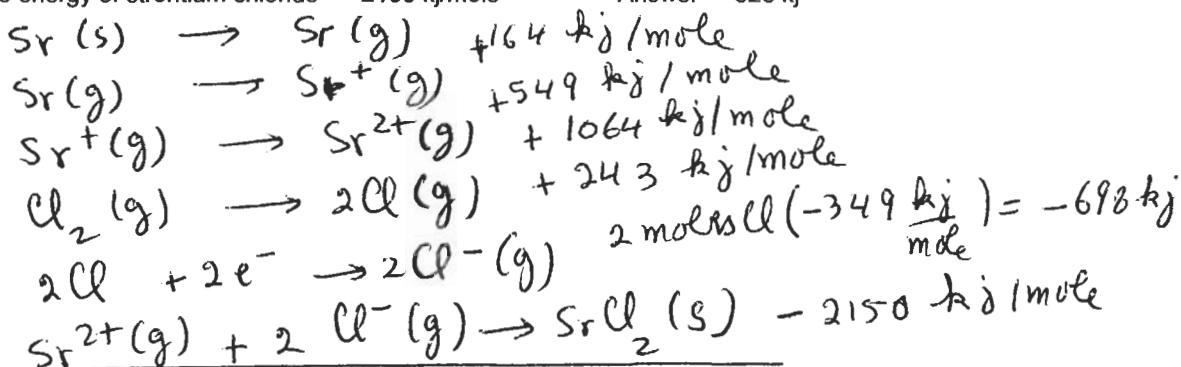 Sr (s) → Sr (g) +164 kj/mole
Sr (g) → Sr⁺ (g) +549 kj/mole
Sr⁺ (g) → Sr²⁺ (g) + 1064 kj/mole
Cl₂ (g) → 2Cl (g) + 243 kj/mole
2Cl + 2e⁻ → 2Cl⁻ (g) 2 moles Cl (-349 kj/mole) = -698 kj
Sr²⁺ (g) + 2 Cl⁻ (g) → SrCl₂ (s) - 2150 kj/mole